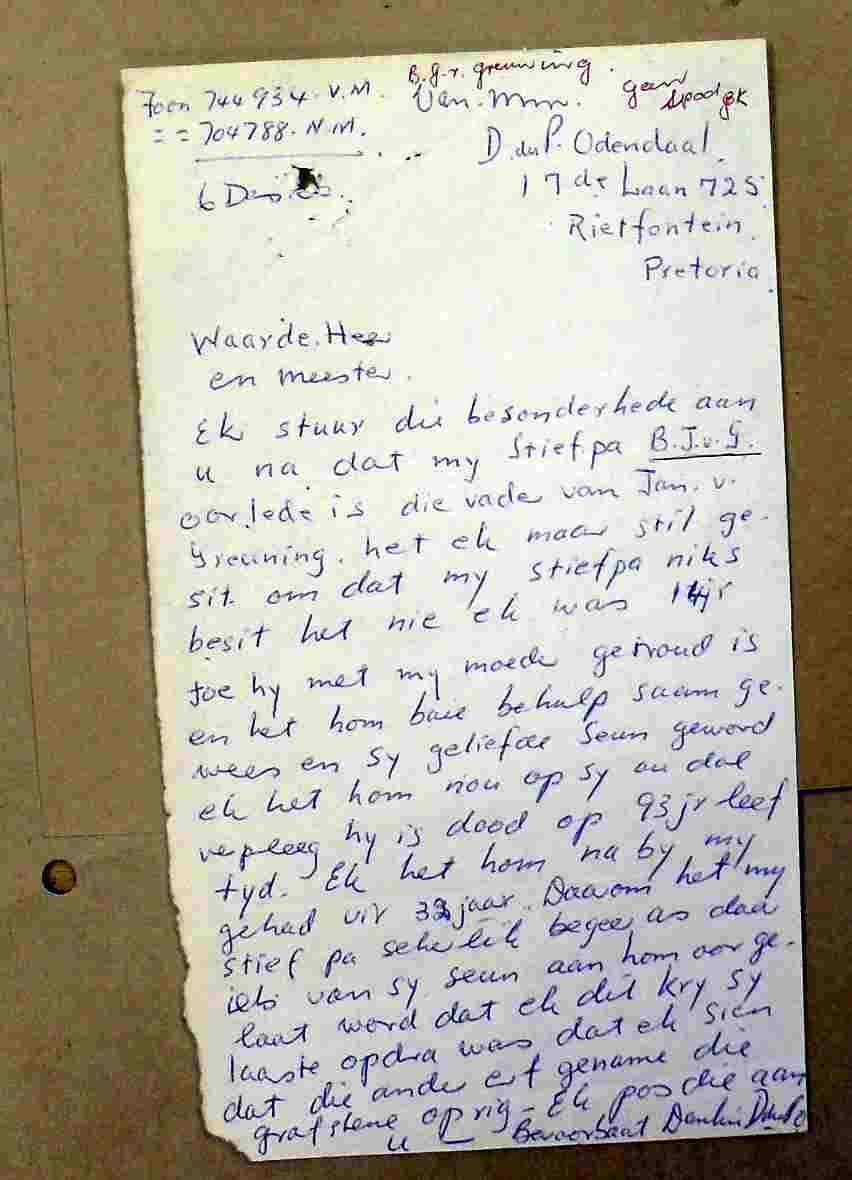 Foon 744934. V.M. B.J.v. Greuning.
Van. Mnr. geen
== 704788. N.M.
D. du P. Odendaal.
6 Des
17de Laan 725
Rietfontein.
Pretoria.
Waarde. Heer
en meester.
Ek stuur die besonderhede aan
u na dat my Stiefpa B.J.v.G.
oorlede is die vader van Jan. v.
Greuning. het ek maar stil ge-
sit om dat my stiefpa niks
besit het nie ek was 14jr
toe hy met my moeder getroud is
en het hom baie behulp saam ge-
wees en sy geliefde seun geword
ek het hom nou op sy ou dae
verpleeg hy is dood op 93jr leef
tyd. Ek het hom na by my
gehad vir jaar. Daarom het my
stief pa sekerlik begeer as daar
iets van sy seun aan hom oor ge-
laat word dat ek dit kry sy
laaste opdra was dat ek sien
dat die ander erf gename die
grafstene oprig - Ek pos die aan
u